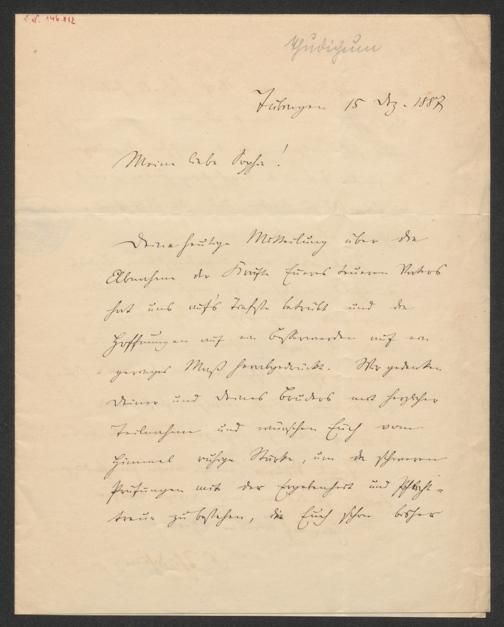 Thudichum
Tübingen 15 Dez. 1887
Meine liebe Sophie!
Deine heutige Mitteilung über die
Abnahme der Kräfte Eueres teueren Vaters
hat uns auf's Tiefste betrübt und die
Hoffnungen auf ein Besserwerden auf ein
geringes Maß herabgedrückt. Wir gedenken
Deiner und Deines Bruders mit herzlicher
Teilnahme und wünschen Euch vom
Himmel ruhige Stärke, um die schweren
Prüfungen mit der Ergebenheit und Pflicht-
treue zu bestehen, die Euch schon bisher